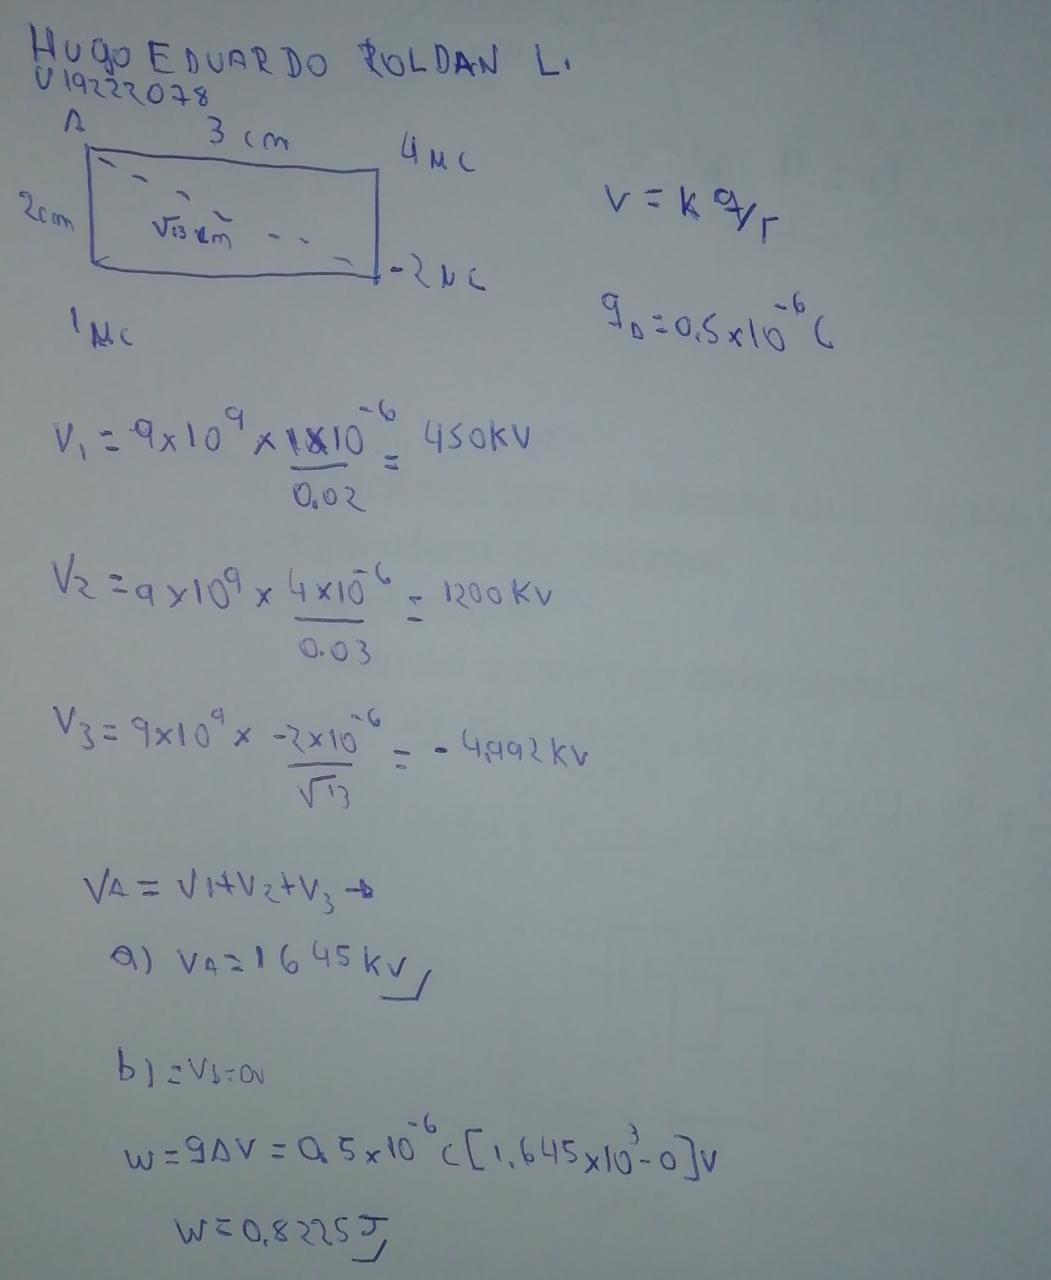 HUGO EDUARDO ROLDAN L.
U19222078
A 3 cm 4 μC
2cm √13 cm -2 μC
1 μC
V = K q/r
q₀ = 0.5x10⁻⁶ C
V₁ = 9x10⁹ x 1x10⁻⁶/0.02 = 450KV
V₂ = 9x10⁹ x 4x10⁻⁶/0.03 = 1200KV
V₃ = 9x10⁹ x -2x10⁻⁶/√13 = - 4,992KV
VA = V₁+V₂+V₃ →
a) VA = 1645 KV
b) = Vb=0V
W = qΔV = 0.5x10⁻⁶ C [1.645x10³-0]V
W = 0,8225J